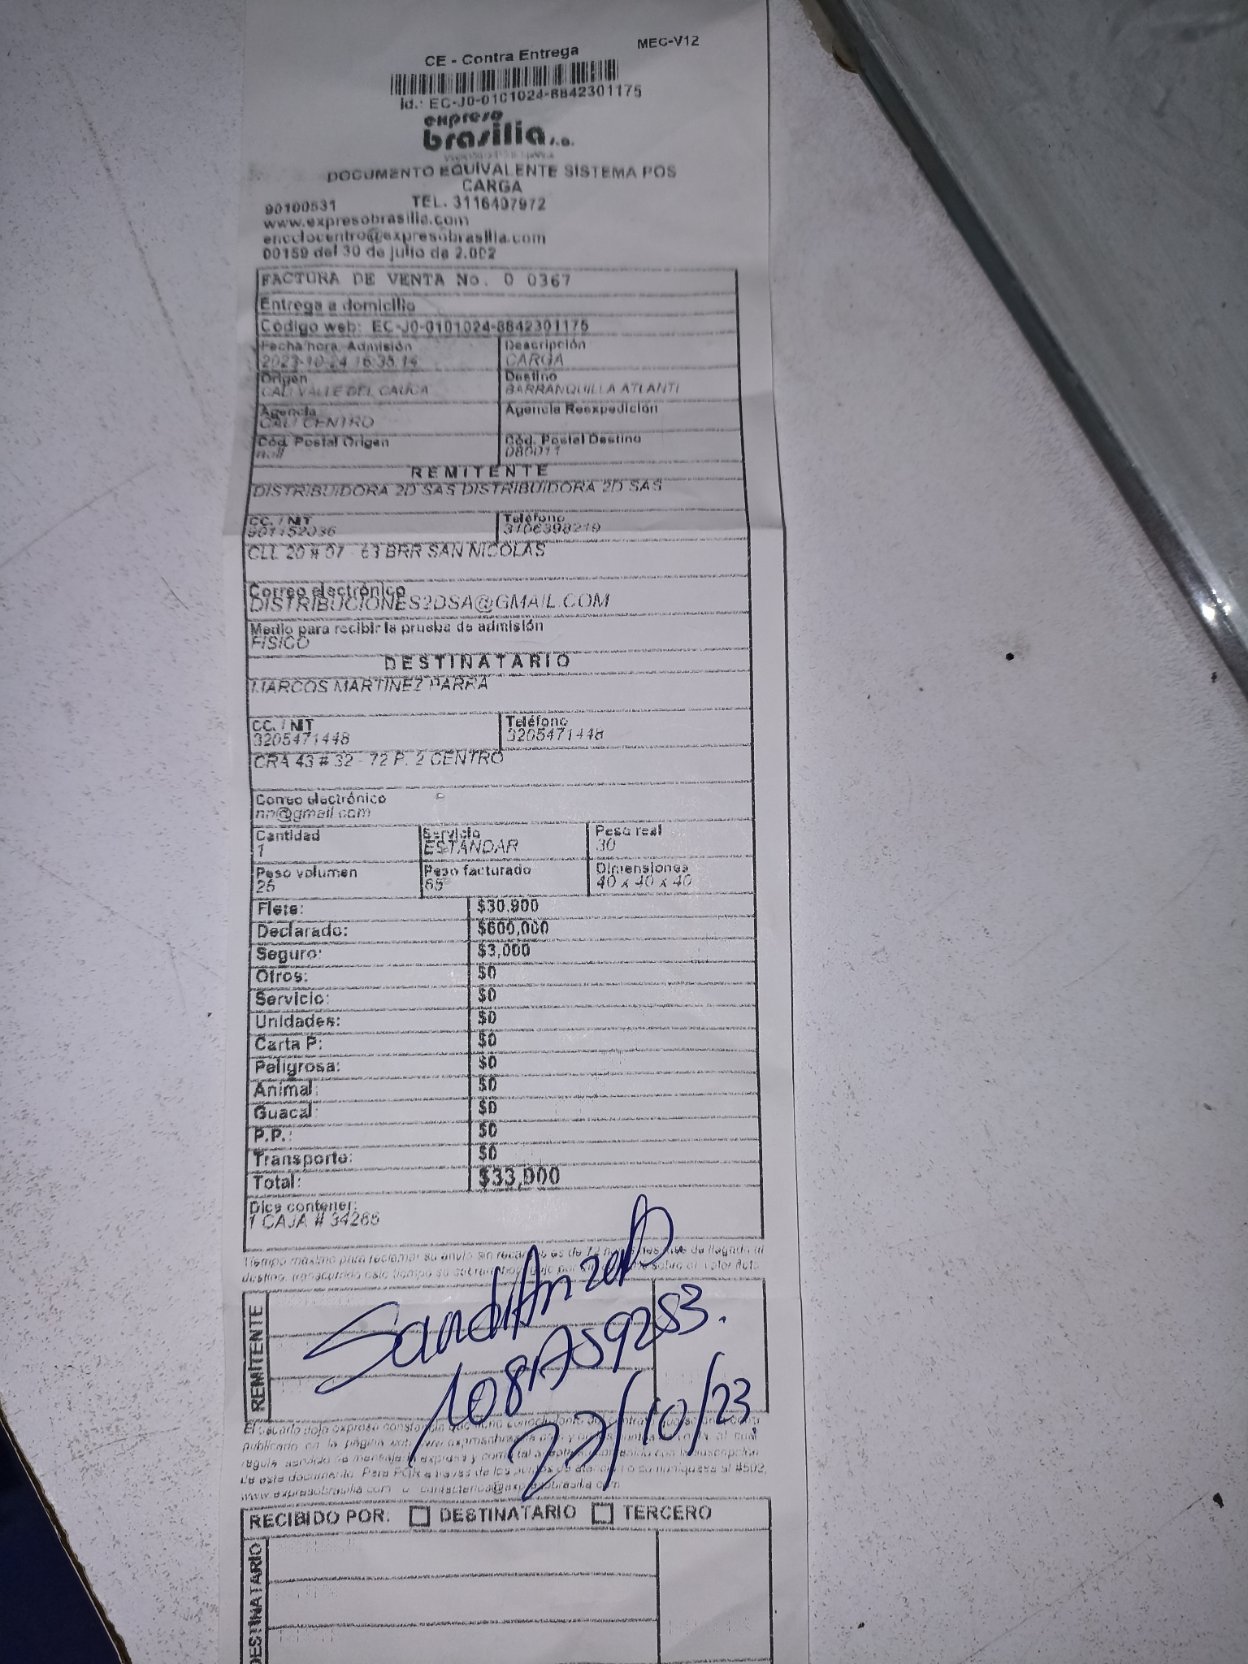 CE - Contra Entrega
MEC-V12
Id.: EC-J0-0101024-8842301175
expreso
brasilia s.a.
DOCUMENTO EQUIVALENTE SISTEMA POS
CARGA
90100531 TEL. 3116497972
www.expresobrasilia.com
encclocentro@expresobrasilia.com
00159 del 30 de julio de 2.002
FACTURA DE VENTA No. 0 0367
Entrega a domicilio
Código web: EC-J0-0101024-8842301175
Fecha/hora Admisión Descripción
2023-10-24 16:35:14 CARGA
Origen Destino
CALI VALLE DEL CAUCA BARRANQUILLA ATLANTI
Agencia Agencia Reexpedición
CALI CENTRO
Cód. Postal Origen Cód. Postal Destino
null 080011
REMITENTE
DISTRIBUIDORA 2D SAS DISTRIBUIDORA 2D SAS
CC. / NIT Teléfono
901152036 3106398219
CLL 20 # 07 - 63 BRR SAN NICOLAS
Correo electrónico
DISTRIBUCIONES2DSA@GMAIL.COM
Medio para recibir la prueba de admisión
FISICO
DESTINATARIO
MARCOS MARTINEZ PARRA
CC. / NIT Teléfono
3205471448 3205471448
CRA 43 # 32 - 72 P. 2 CENTRO
Correo electrónico
nn@gmail.com
Cantidad Servicio Peso real
1 ESTÁNDAR 30
Peso volumen Peso facturado Dimensiones
26 65 40 x 40 x 40
Flete: $30,900
Declarado: $600,000
Seguro: $3,000
Otros: $0
Servicio: $0
Unidades: $0
Carta P: $0
Peligrosa: $0
Animal: $0
Guacal: $0
P.P.: $0
Transporte: $0
Total: $33,900
Dice contener:
1 CAJA # 34265
Tiempo máximo para reclamar su envío sin recargo es de de llegado al
destino, transcurrido este tiempo se sobre el valor flete
REMITENTE
27/10/23
El usuario deja expresa constancia que
publicado en la página web www.expresobrasilia.com
regula servicio de mensajería expresa y
de este documento. Para PQR a través de los comuníquese al #502,
www.expresobrasilia.com
RECIBIDO POR: DESTINATARIO TERCERO
DESTINATARIO